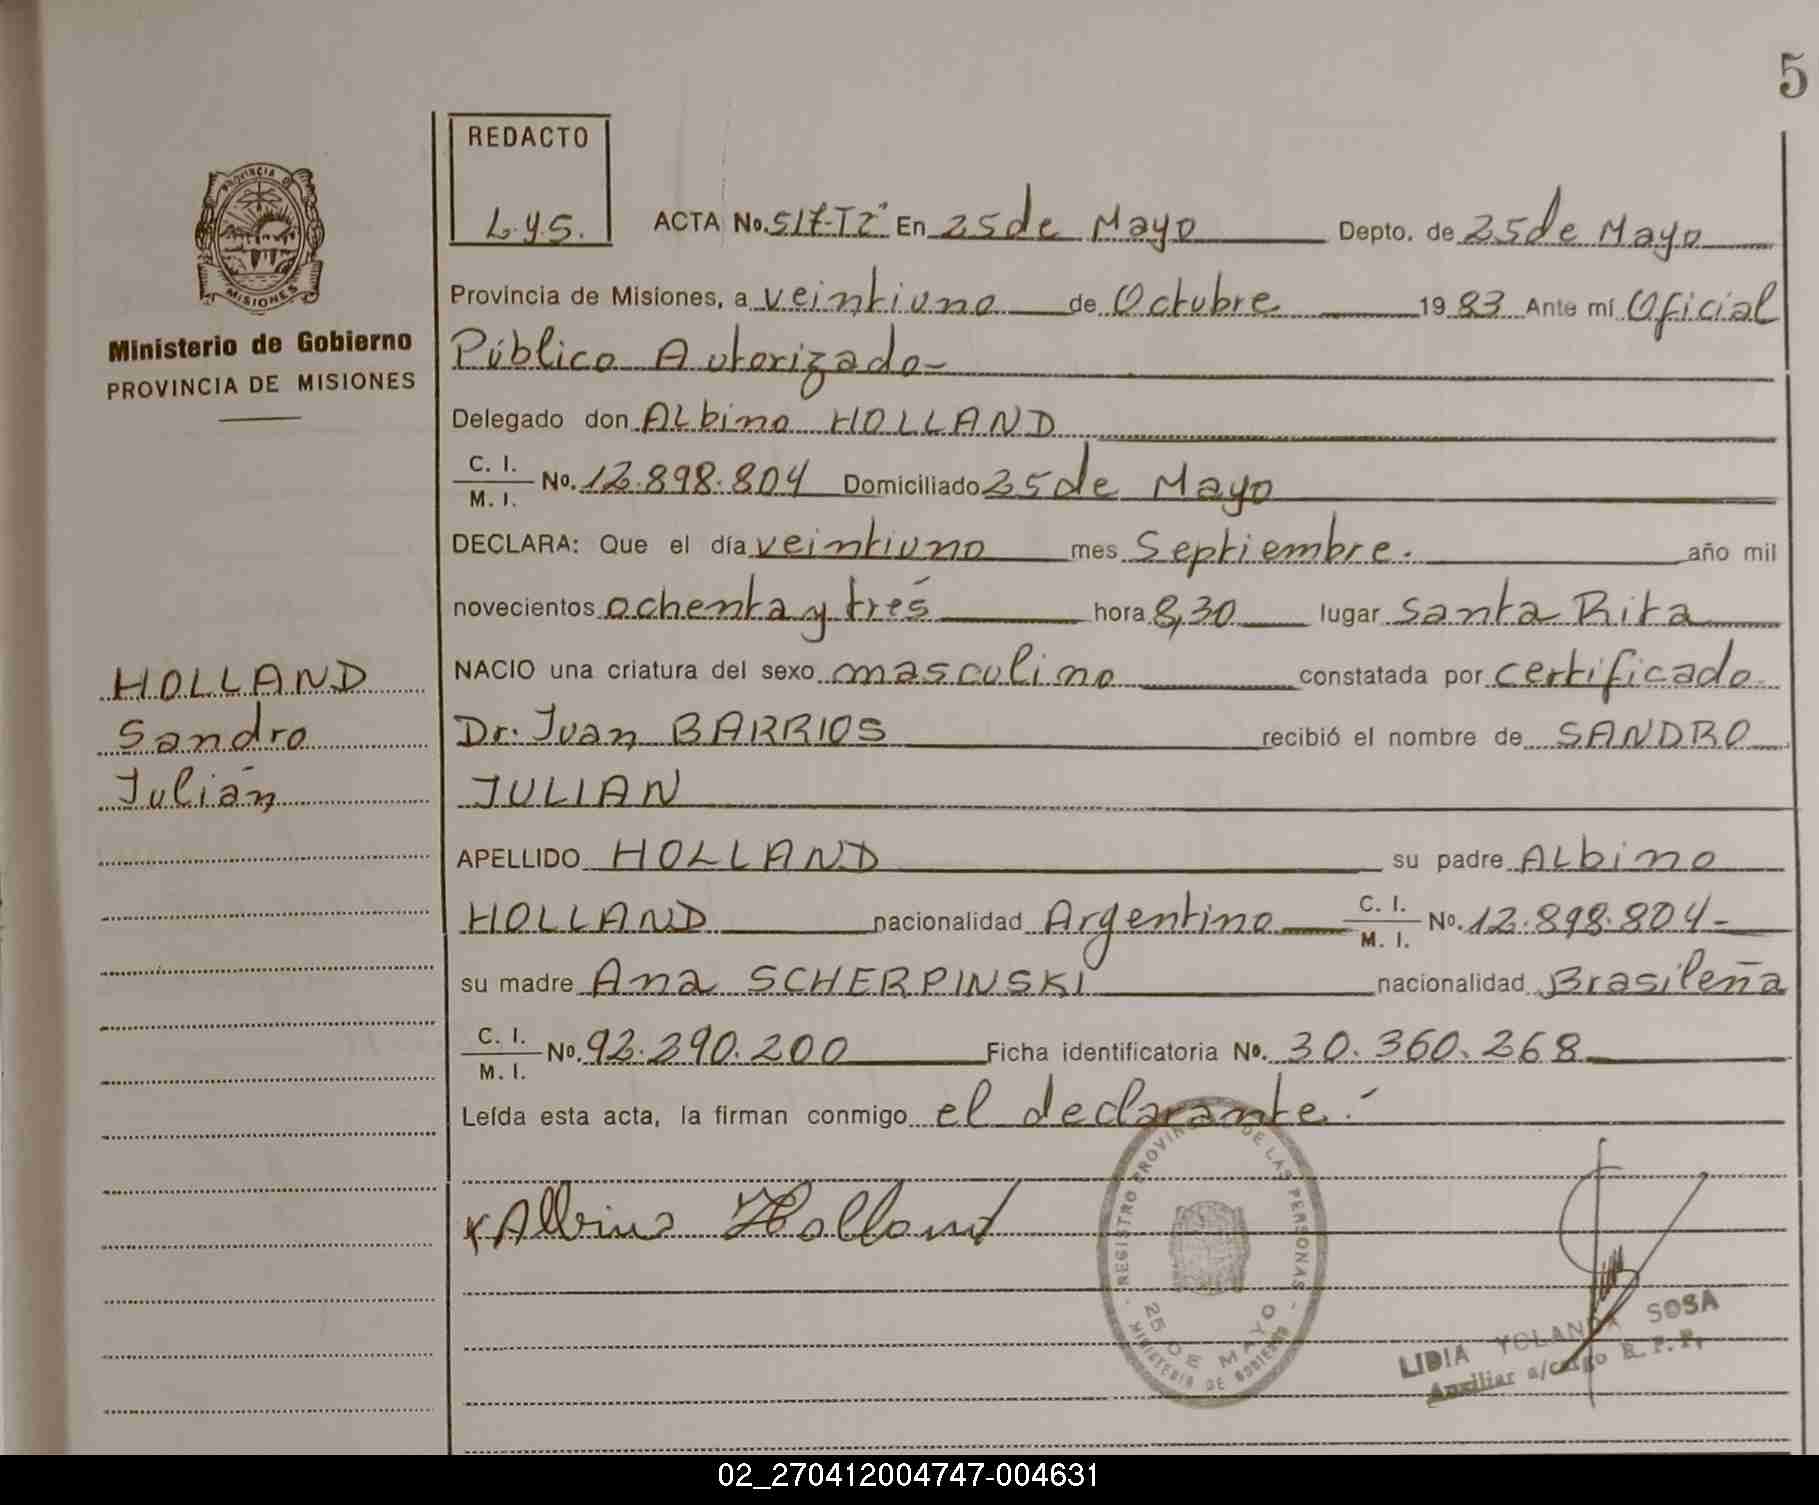 5
REDACTO
L.y.S.
PROVINCIA DE
MISIONES
Ministerio de Gobierno
PROVINCIA DE MISIONES
ACTA No. 517-T2° En 25 de Mayo Depto. de 25 de Mayo
Provincia de Misiones, a veintiuno de Octubre 1983 Ante mí Oficial
Público Autorizado-
Delegado don Albino HOLLAND
C. I.
M. I. No. 12.898.804 Domiciliado 25 de Mayo
DECLARA: Que el día veintiuno mes Septiembre. año mil
novecientos ochenta y trés hora 8,30 lugar Santa Rita
NACIO una criatura del sexo masculino constatada por certificado
Dr. Juan BARRIOS recibió el nombre de SANDRO
JULIAN
HOLLAND
Sandro
Julián
APELLIDO HOLLAND su padre Albino
HOLLAND nacionalidad Argentino C. I.
M. I. No. 12.898.804-
su madre Ana SCHERPINSKI nacionalidad Brasileña
C. I.
M. I. No. 92.290.200 Ficha identificatoria No. 30.360.268
Leída esta acta, la firman conmigo el declarante.-
x Albino Holland
REGISTRO PROVINCIAL DE LAS PERSONAS
25 DE MAYO
MINISTERIO DE GOBIERNO
LIDIA YOLANDA SOSA
Auxiliar a/cargo R. P. P.
02_270412004747-004631